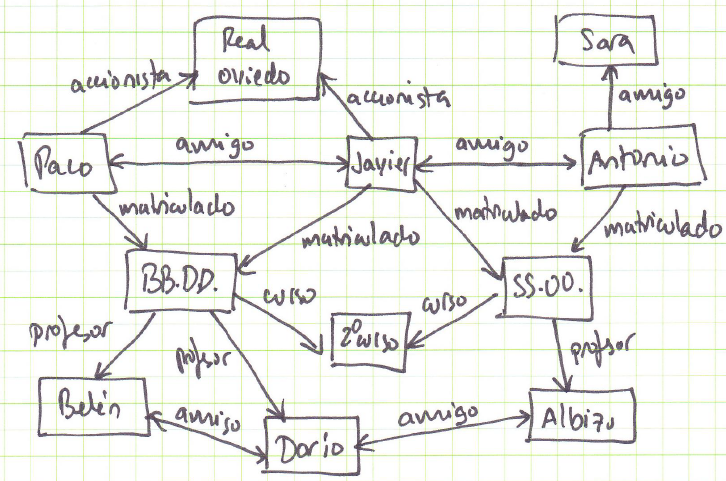 Real
oviedo
Sara
accionista
accionista
amigo
Paco
amigo
Javier
amigo
Antonio
matriculado
matriculado
matriculado
matriculado
BB.DD.
SS.OO.
curso
curso
2º curso
profesor
profesor
profesor
Belén
amigo
Darío
amigo
Albizu